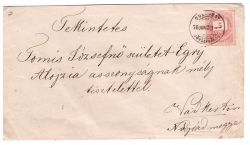 Tekintetes
Tomis Józsefné született Egry
Alojzia asszonyságnak mély
tisztelettel
Vadkerten
Nógrád megye